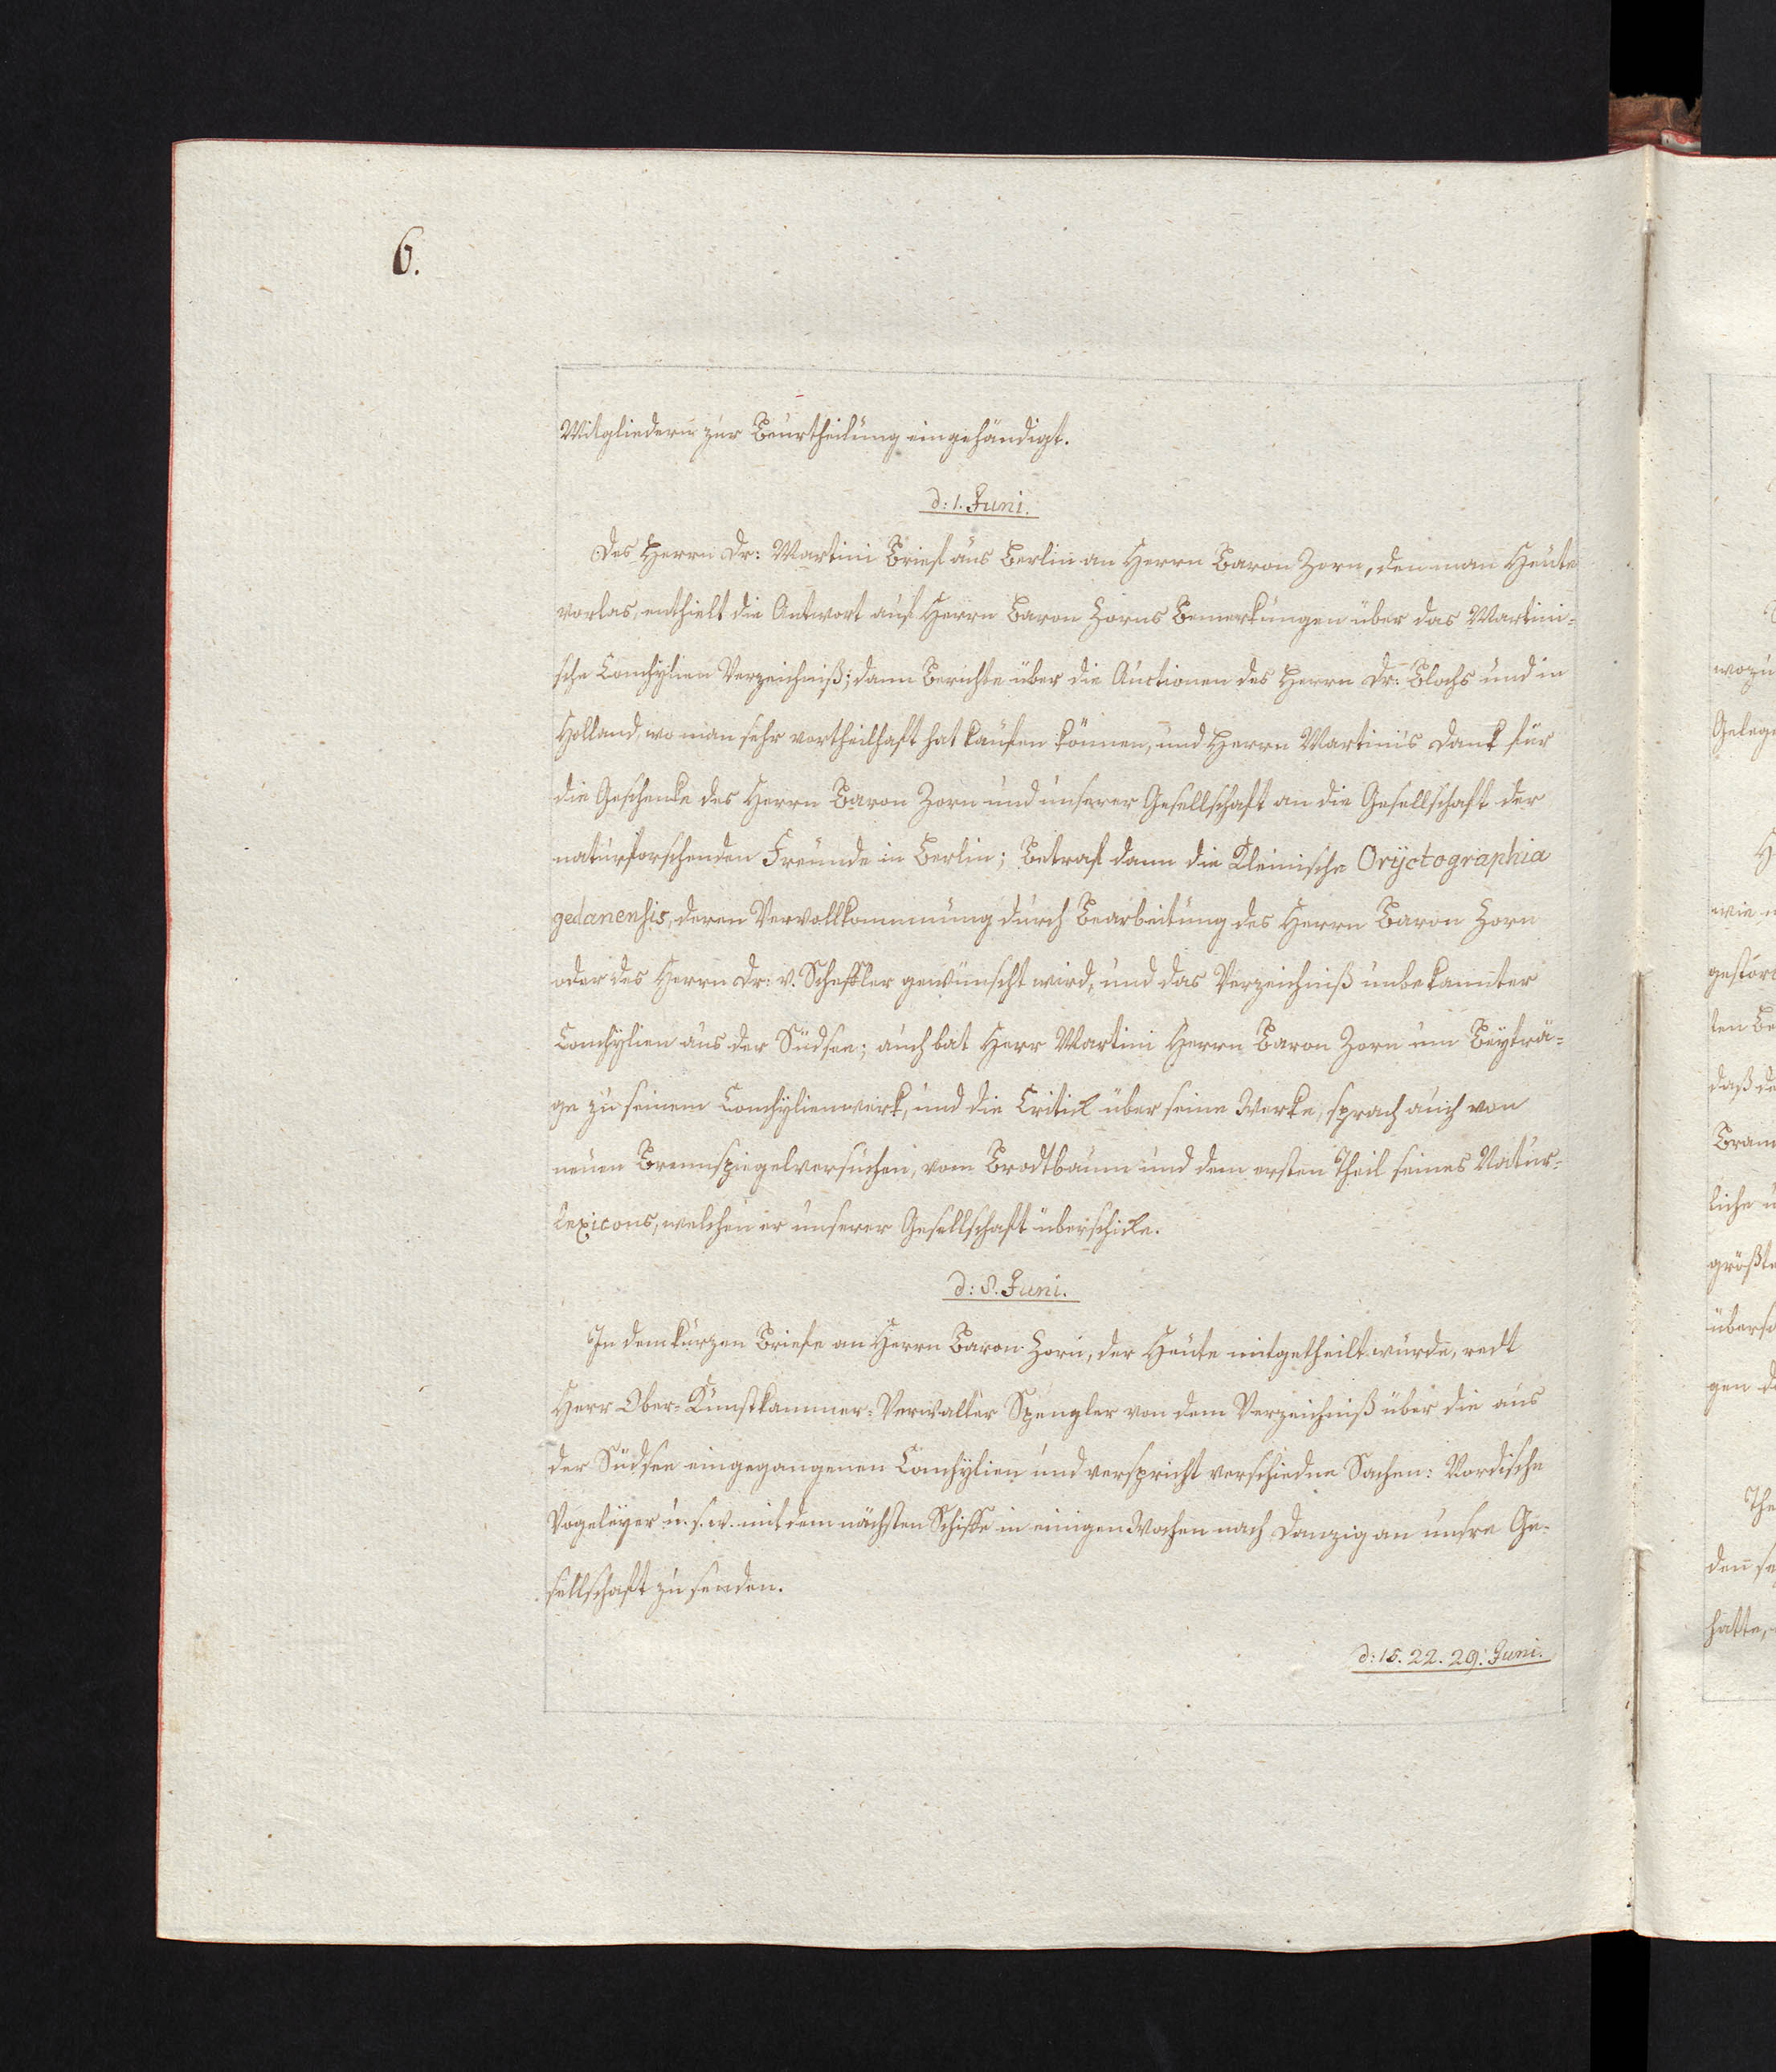 6.
Mitgliedern zur Beurtheilung eingehändigt.
d: 1. Juni.
Des Herrn Dr: Martini Brief aus Berlin an Herrn Baron Zorn, den man Heute
vorlas, enthielt die Antwort auf Herrn Baron Zorns Bemerkungen über das Martini-
sche Conchylien Verzeichniß; dann Berichte über die Auctionen des Herrn Dr: Blochs und in
Holland, wo man sehr vortheilhaft hat kaufen können, und Herrn Martini's Dank für
die Geschenke des Herrn Baron Zorn und unserer Gesellschaft an die Gesellschaft der
naturforschenden Freunde in Berlin; Betraf dann die Kleinische Oryctographia
gedanensis, deren Vervollkommnung durch Bearbeitung des Herrn Baron Zorn
oder des Herrn Dr: v. Scheffler gewünscht wird, und das Verzeichniß unbekannter
Conchylien aus der Südsee; auch bat Herr Martini Herrn Baron Zorn um Beyträ-
ge zu seinem Conchylienwerk, und die Critick über seine Werke, sprach auch von
neuen Brennspiegelversuchen, vom Brodtbaum und dem ersten Theil seines Natur-
lexicons, welchen er unserer Gesellschaft überschicke.
d: 8. Juni.
In dem kurzen Briefe an Herrn Baron Zorn, der Heute mitgetheilt wurde, redt
Herr Ober-Kunstkammer-Verwalter Spengler von dem Verzeichniß über die aus
der Südsee eingegangenen Conchylien und verspricht verschiedne Sachen: Nordische
Vogeleyer u. s. w. mit dem nächsten Schiffe in einigen Wochen nach Danzig an unsre Ge-
sellschaft zu senden.
d: 15. 22. 29. Juni.
wozu
Geleg
wie
ten Be
daß de
liche
größte
gen
hatte,